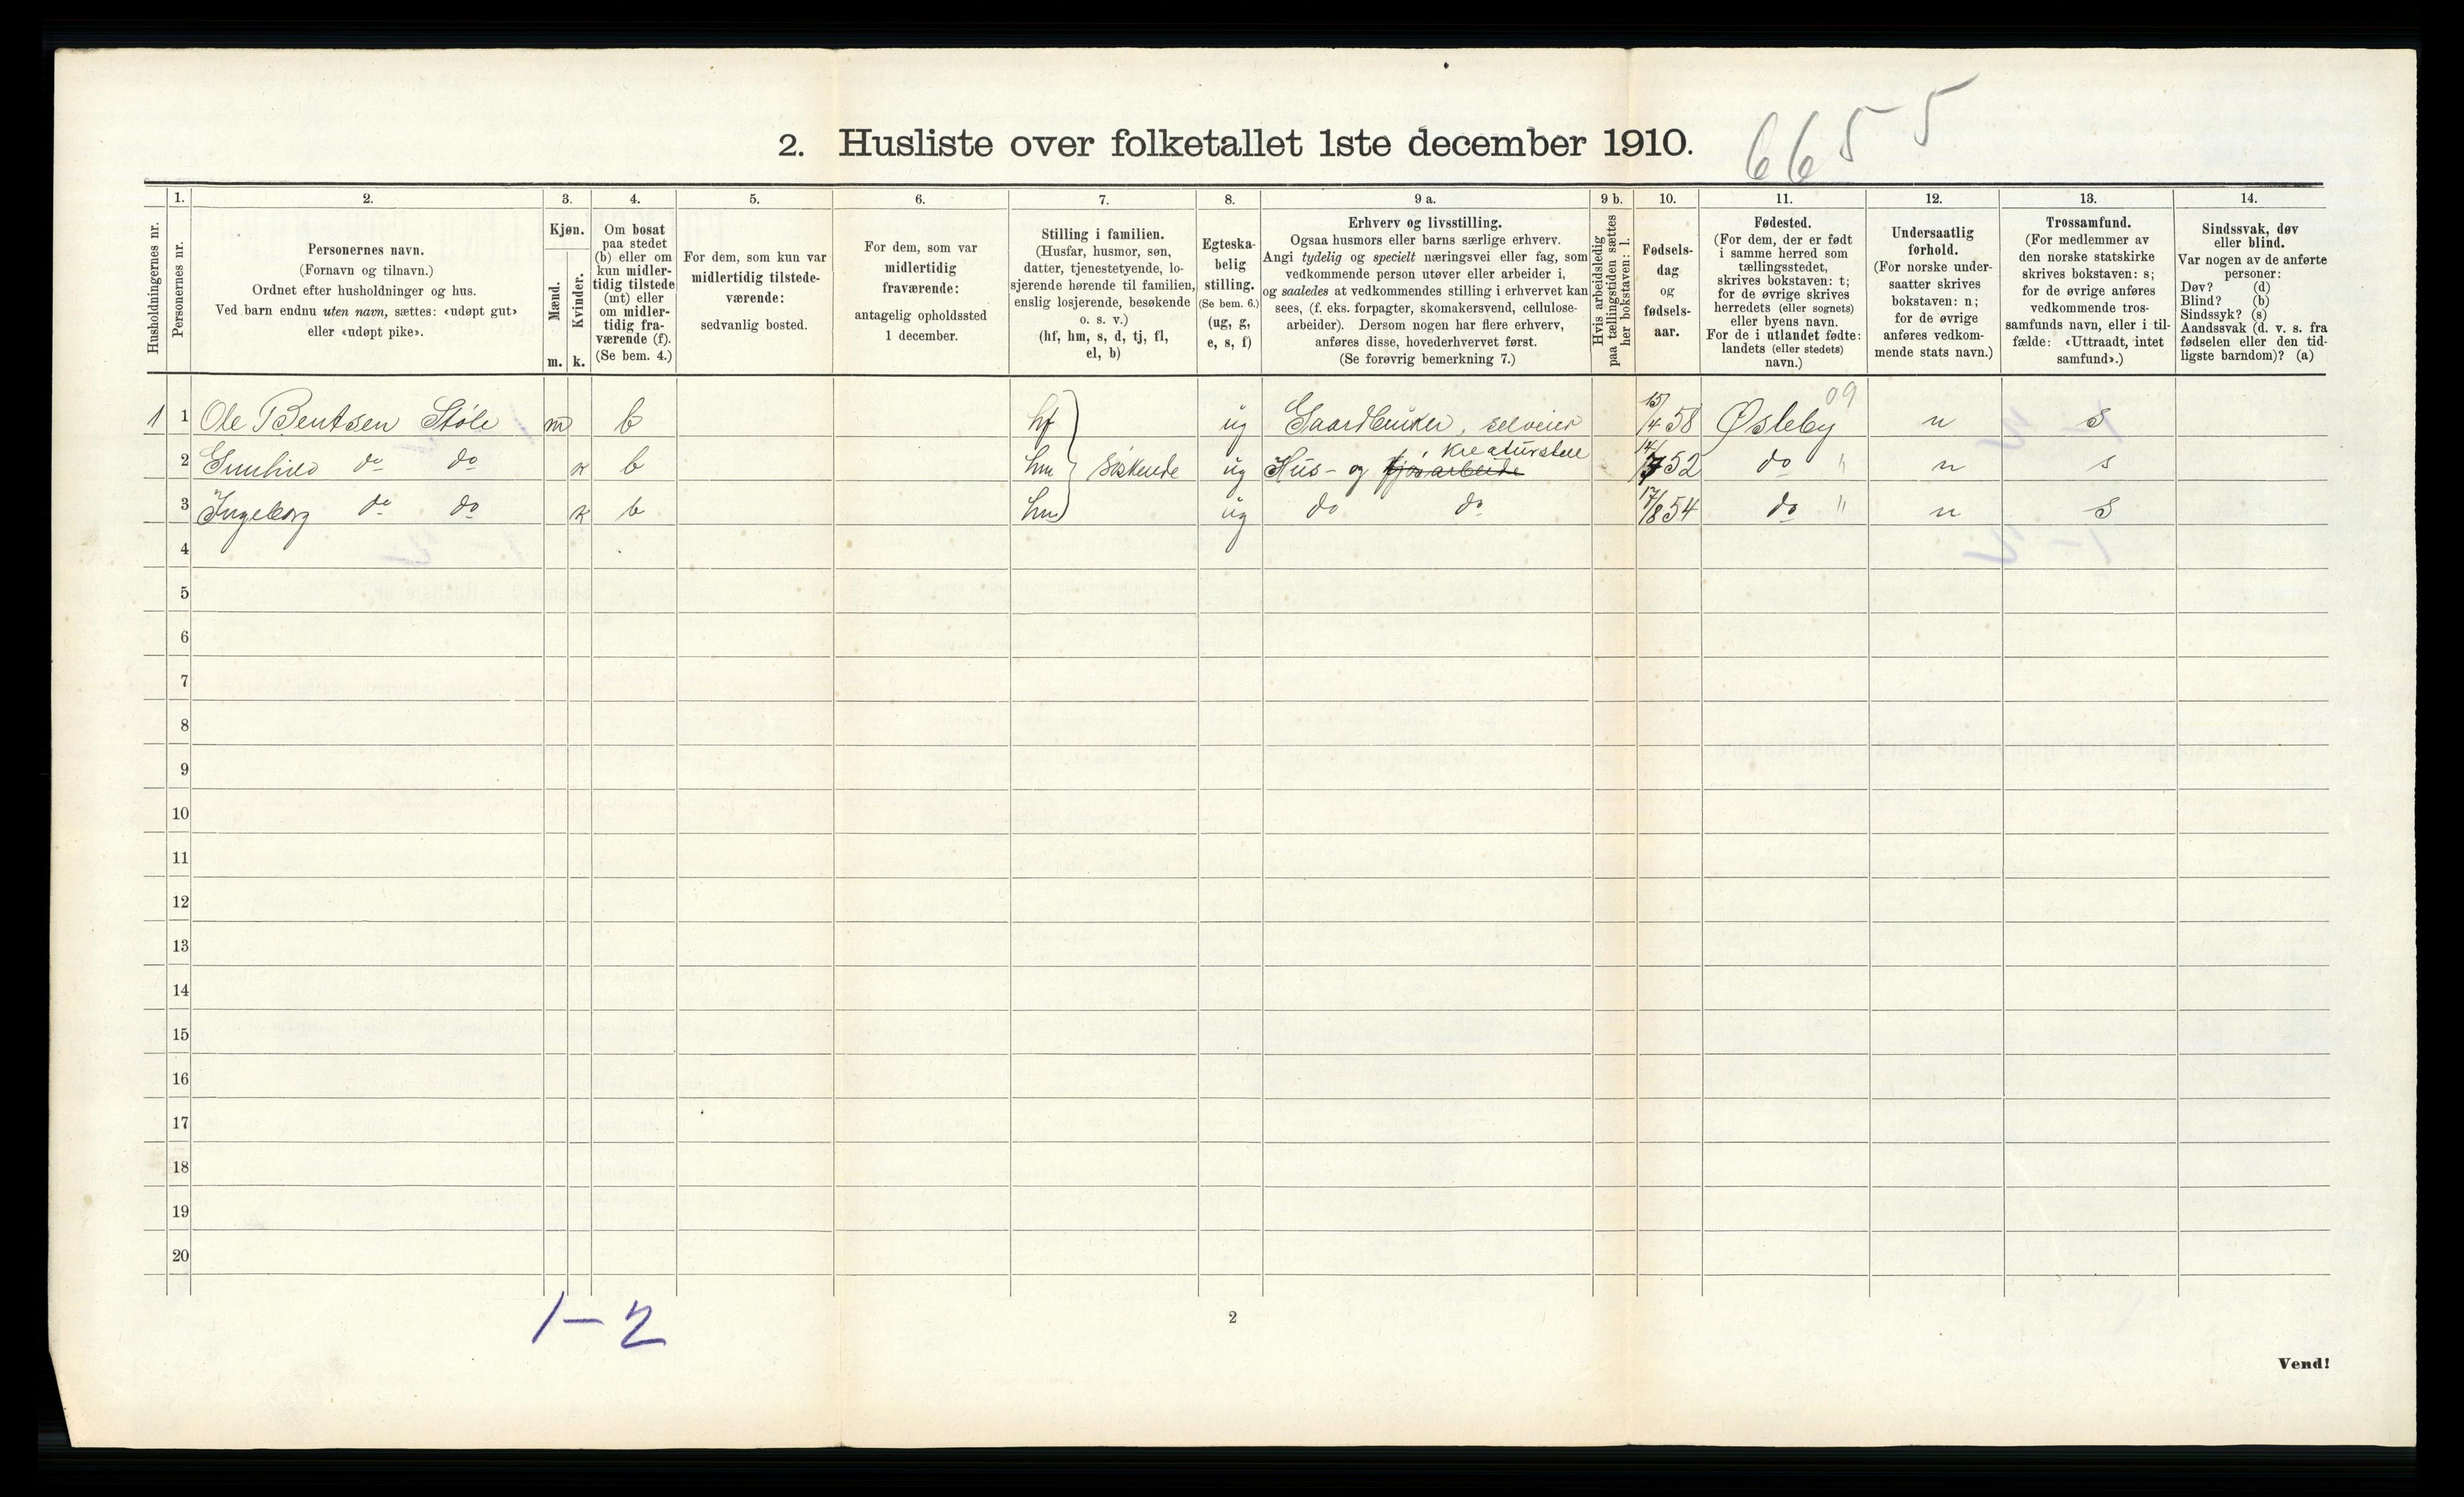 2. Husliste over folketallet 1ste december 1910.
6655
Husholdningernes nr.
1.
Personernes nr.
2.
Personernes navn.
(Fornavn og tilnavn.)
Ordnet efter husholdninger og hus.
Ved barn endnu uten navn, sættes: «udøpt gut»
eller «udøpt pike».
3.
Kjøn.
Mænd.
Kvinder.
m. k.
4.
Om bosat
paa stedet
(b) eller om
kun midler-
tidig tilstede
(mt) eller
om midler-
tidig fra-
værende (f).
(Se bem. 4.)
5.
For dem, som kun var
midlertidig tilstede-
værende:
sedvanlig bosted.
6.
For dem, som var
midlertidig
fraværende:
antagelig opholdssted
1 december.
7.
Stilling i familien.
(Husfar, husmor, søn,
datter, tjenestetyende, lo-
sjerende hørende til familien,
enslig losjerende, besøkende
o. s. v.)
(hf, hm, s, d, tj, fl,
el, b)
8.
Egteska-
belig
stilling.
(Se bem. 6.)
(ug, g,
e, s, f)
9 a.
Erhverv og livsstilling.
Ogsaa husmors eller barns særlige erhverv.
Angi tydelig og specielt næringsvei eller fag, som
vedkommende person utøver eller arbeider i,
og saaledes at vedkommendes stilling i erhvervet kan
sees, (f. eks. forpagter, skomakersvend, cellulose-
arbeider). Dersom nogen har flere erhverv,
anføres disse, hovederhvervet først.
(Se forøvrig bemerkning 7.)
9 b.
Hvis arbeidsledig
paa tællingstiden sættes
her bokstaven: l.
10.
Fødsels-
dag
og
fødsels-
aar.
11.
Fødested.
(For dem, der er født
i samme herred som
tællingsstedet,
skrives bokstaven: t;
for de øvrige skrives
herredets (eller sognets)
eller byens navn.
For de i utlandet fødte:
landets (eller stedets)
navn.)
12.
Undersaatlig
forhold.
(For norske under-
saatter skrives
bokstaven: n;
for de øvrige
anføres vedkom-
mende stats navn.)
13.
Trossamfund.
(For medlemmer av
den norske statskirke
skrives bokstaven: s;
for de øvrige anføres
vedkommende tros-
samfunds navn, eller i til-
fælde: «Uttraadt, intet
samfund».)
14.
Sindssvak, døv
eller blind.
Var nogen av de anførte
personer:
Døv? (d)
Blind? (b)
Sindssyk? (s)
Aandssvak (d. v. s. fra
fødselen eller den tid-
ligste barndom)? (a)
09
1 1 Ole Bentsen Støle m b hf ug Gaardbruker, selveier 15/4 58 Øsleby n s
kreaturstell
2 Gunhild do do k b hm Søskende ug Hus- og fjøsarbeide 14/7 52 do " n s
3 Ingeborg do do k b hm ug do do 17/8 54 do " n s
4
5
6
7
8
9
10
11
12
13
14
15
16
17
18
19
20
1-2
2
Vend!